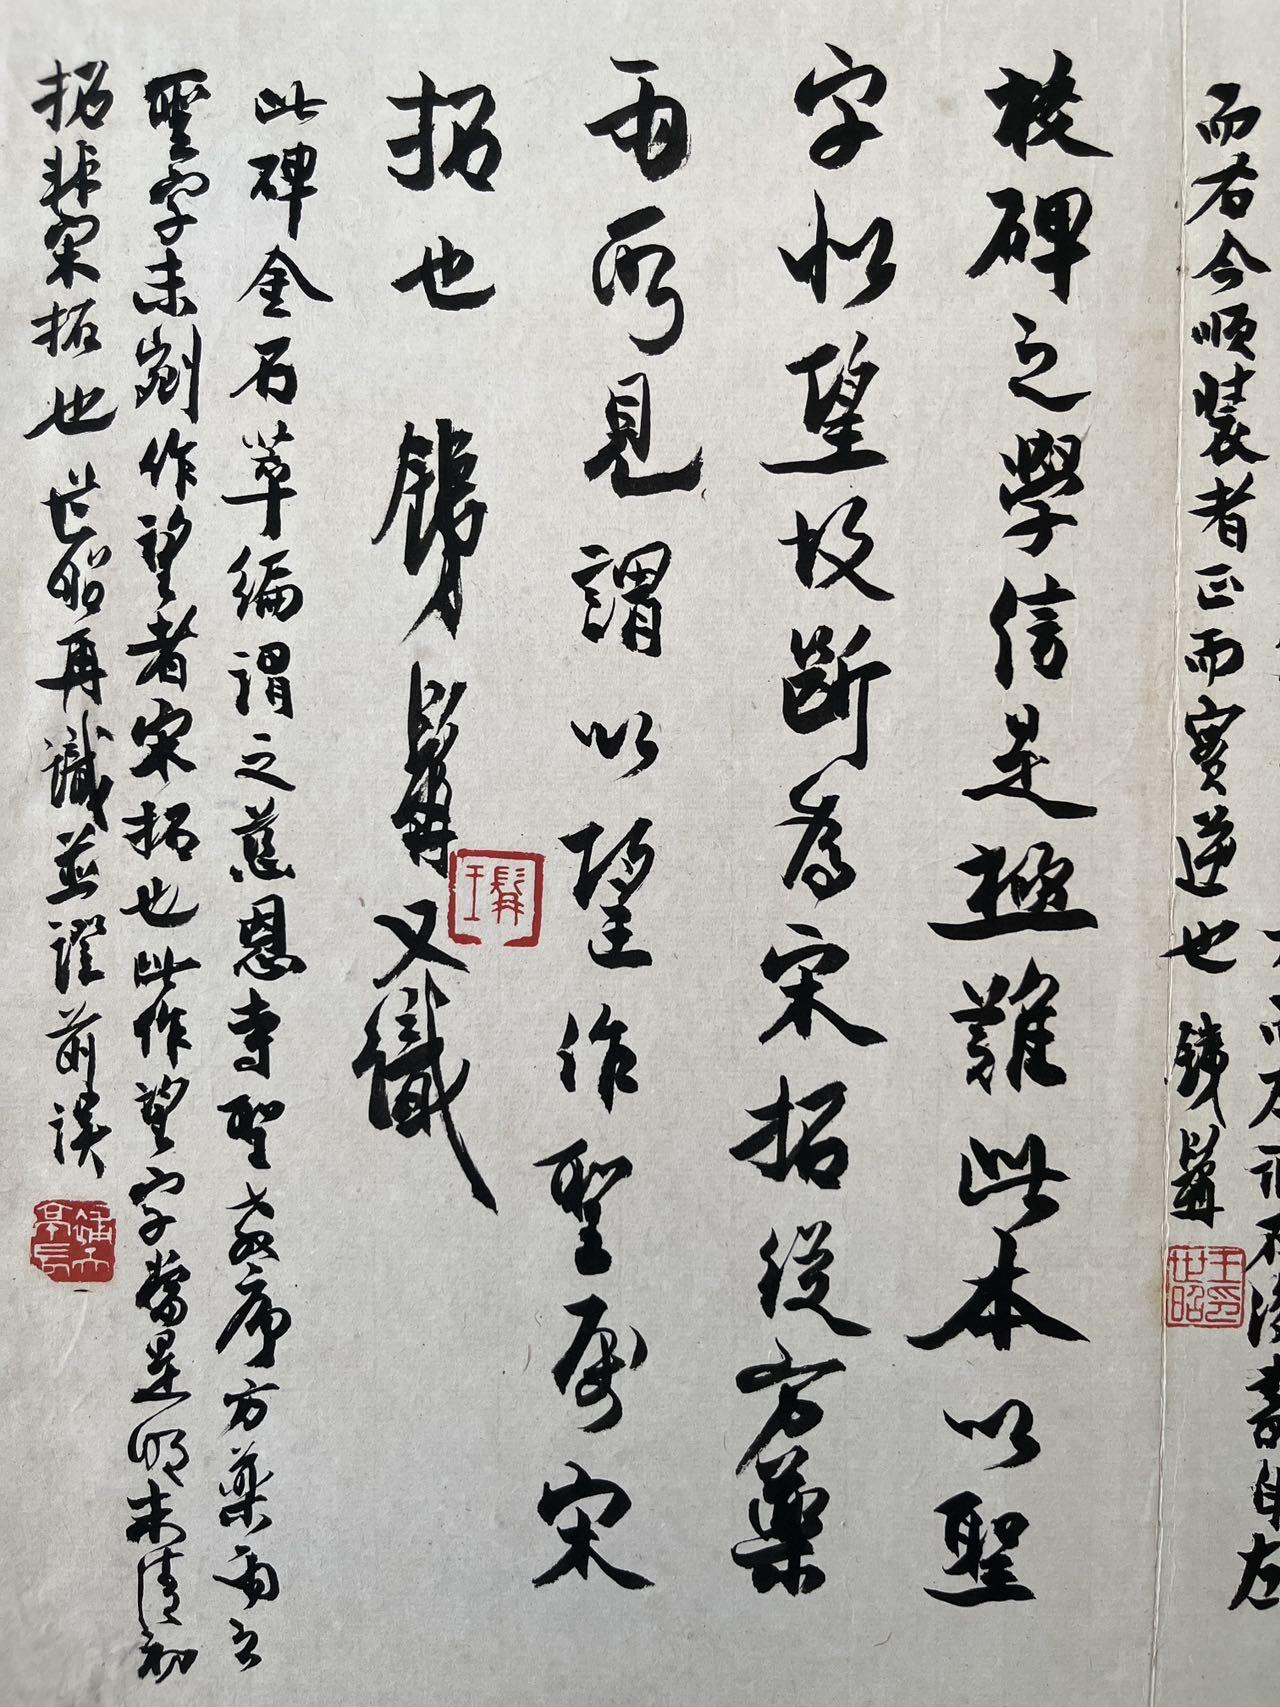 而右今順裝者正而實逆也 鐵髯
王印世昭
校碑之學信是極難此本以聖
字似望故斷為宋拓從方藥
雨所見謂以望作聖屬宋
拓也 鐵髯又識
王髯
此碑金石萃編謂之慈恩寺聖教序方藥雨云
聖字未剜作望者宋拓也此作望字當是明末清初
拓非宋拓也 世昭再識並證前誤